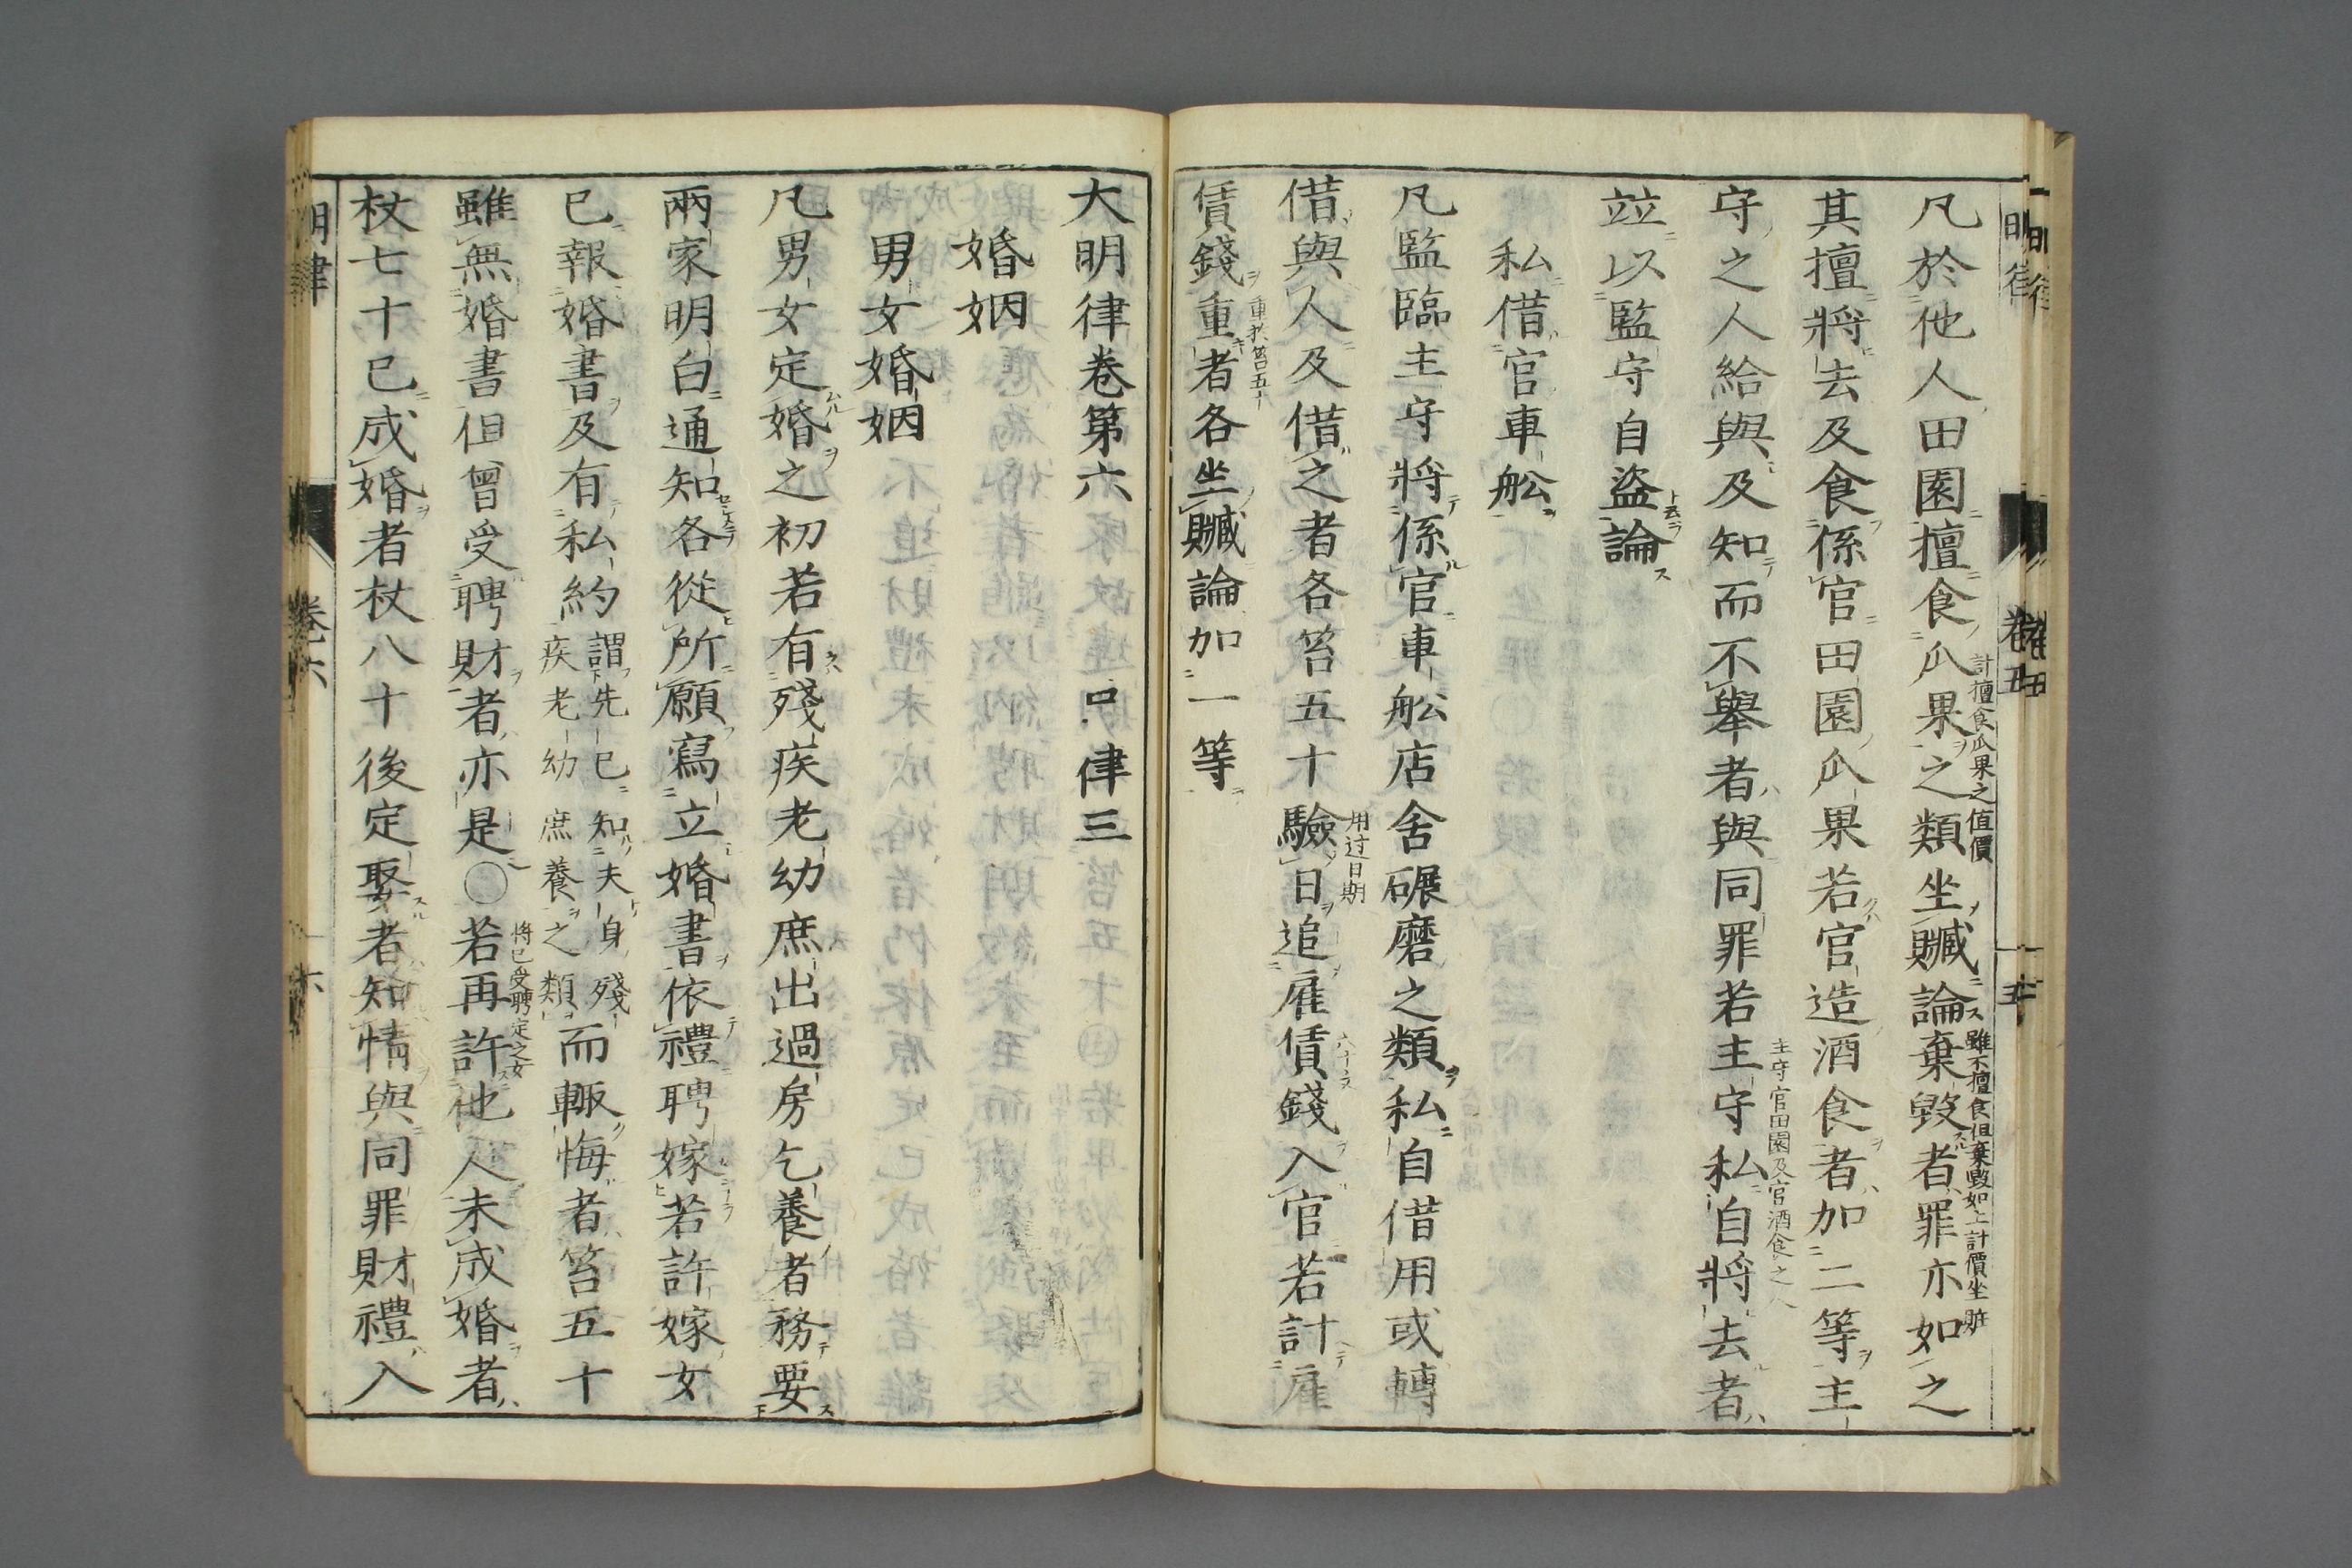 凡於他人田園擅食瓜果之類坐贓論棄毀者罪亦如之
計擅食瓜果之值價
雖不擅食但棄毀如上計價坐贓
其擅將去及食係官田園瓜果若官造酒食者加二等主
守之人給與及知而不舉者與同罪若主守私自將去者
主守官田園及官酒食之人
竝以監守自盜論
私借官車舩
凡監臨主守將係官車舩店舍碾磨之類私自借用或轉
借與人及借之者各笞五十驗日追雇賃錢入官若計雇
用过日期
賃錢重者各坐贓論加一等
重於笞五十
大明律卷第六 戶律三
婚姻
男女婚姻
凡男女定婚之初若有殘疾老幼庶出過房乞養者務要
兩家明白通知各從所願寫立婚書依禮聘嫁若許嫁女
已報婚書及有私約謂先已知夫身殘疾老幼庶養之類而輙悔者笞五十
雖無婚書但曾受聘財者亦是○若再許他人未成婚者
將已受聘定之女
杖七十已成婚者杖八十後定娶者知情與同罪財禮入
明律 卷六 六